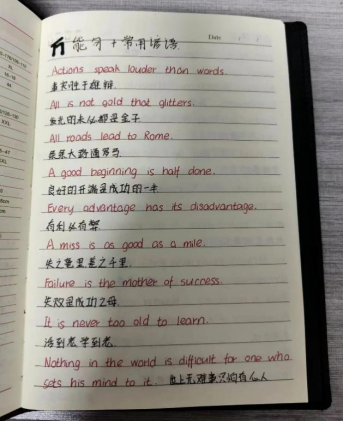 万能句+常用谚语
Date
Actions speak louder than words.
事实胜于雄辩.
All is not gold that glitters.
发光的未必都是金子
All roads lead to Rome.
条条大路通罗马
A good beginning is half done.
良好的开端是成功的一半
Every advantage has its disadvantage.
有利必有弊
A miss is as good as a mile.
失之毫厘差之千里.
Failure is the mother of success.
失败是成功之母
It is never too old to learn.
活到老学到老
Nothing in the world is difficult for one who
sets his mind to it. 世上无难事只怕有心人